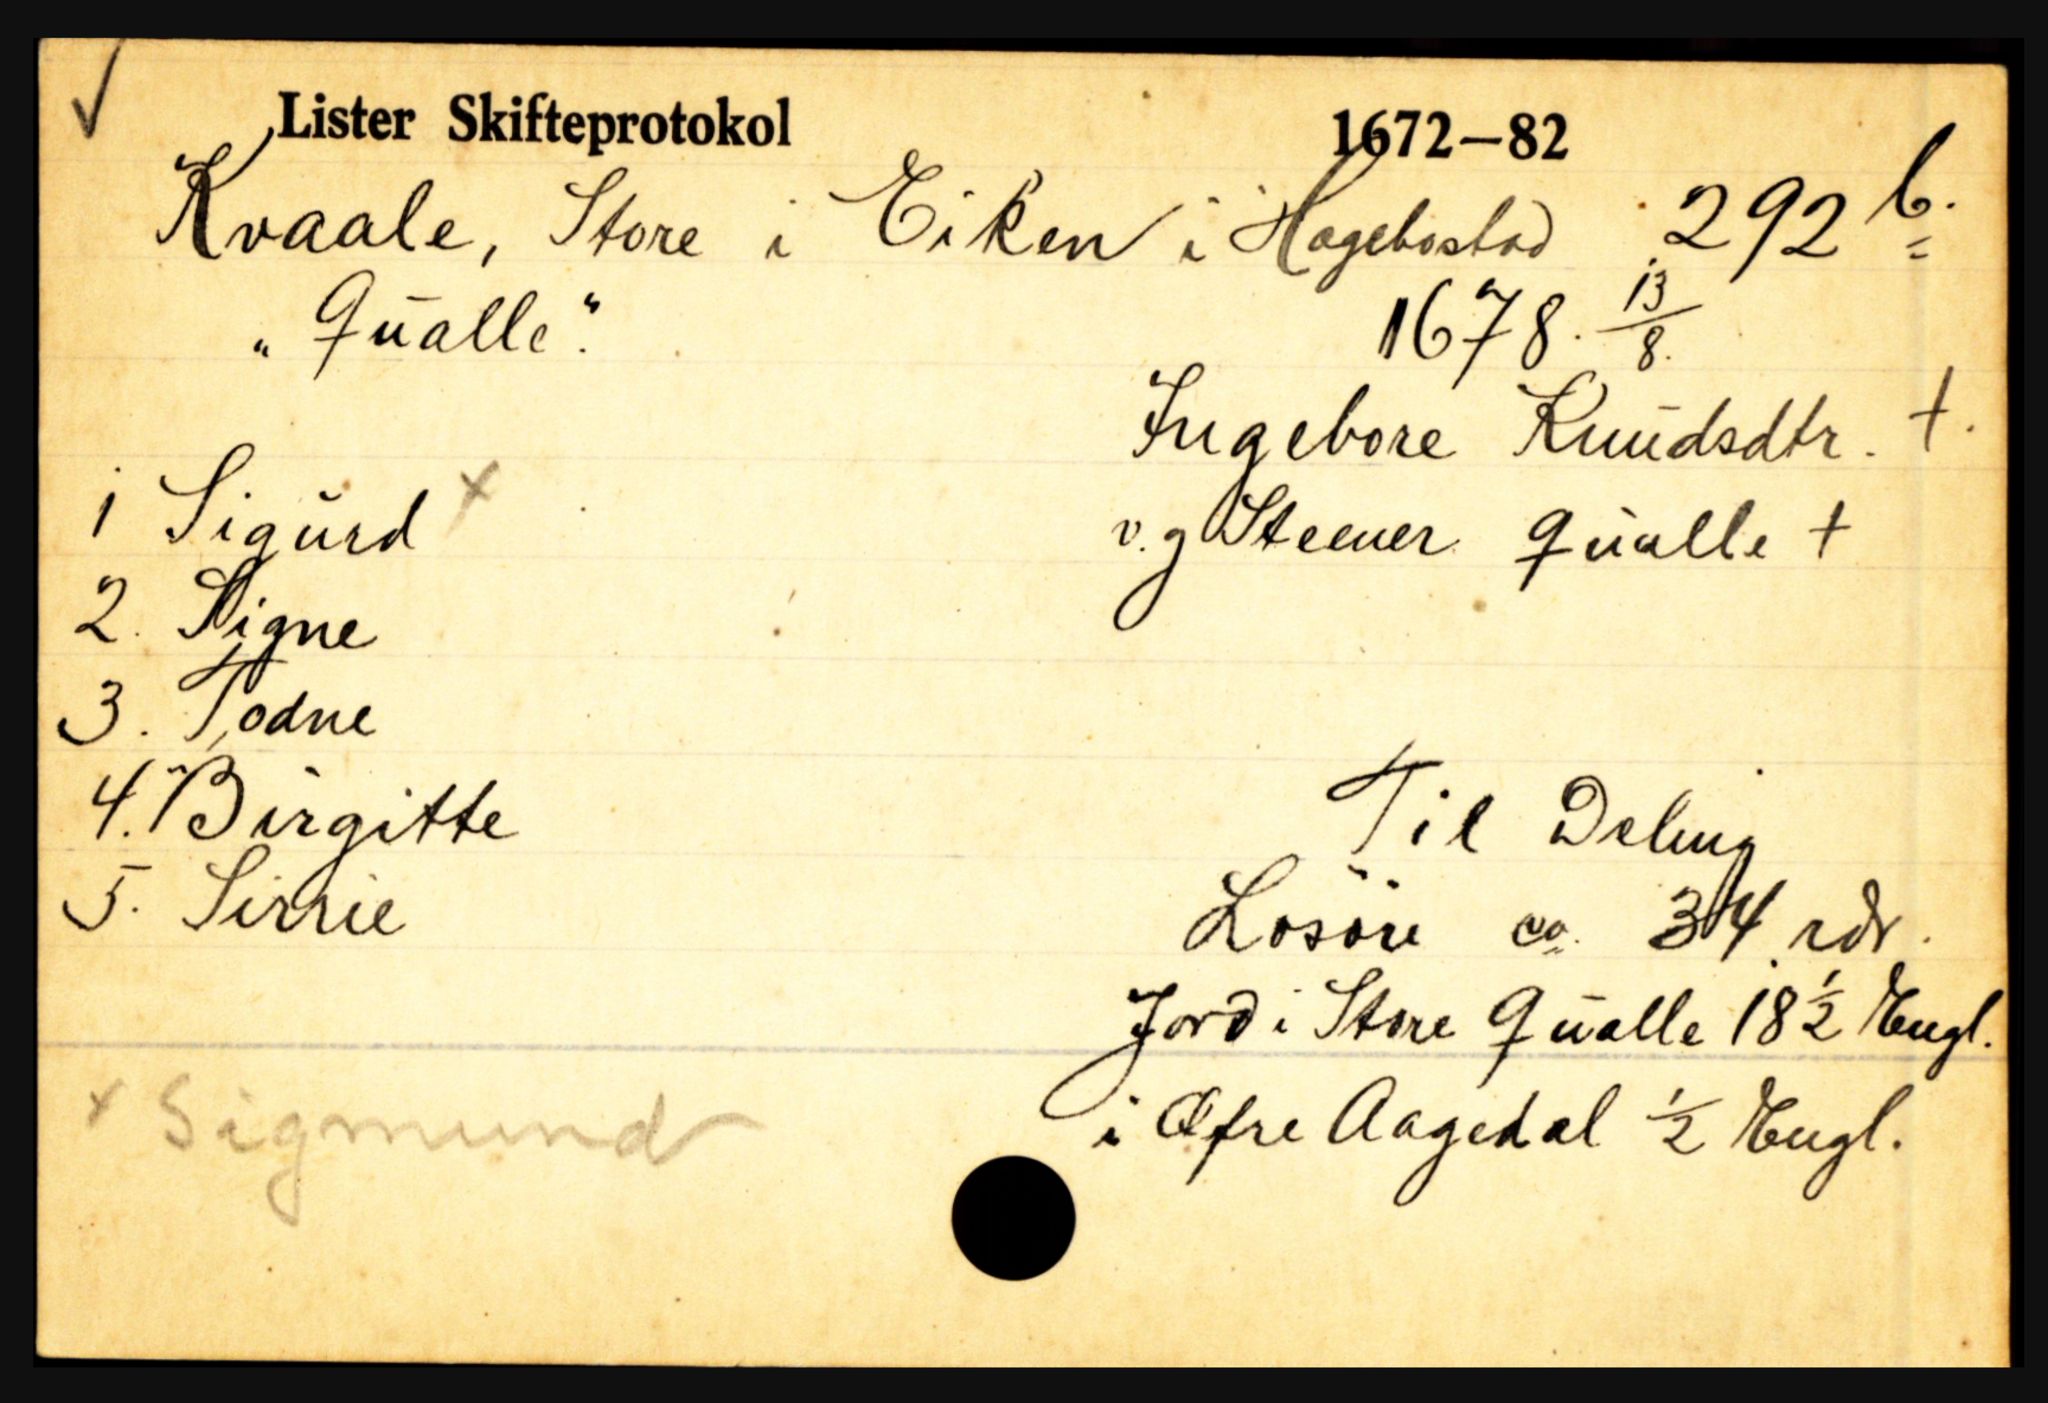 ✓
Lister Skifteprotokol 1672–82
Kvaale, Store i Eiken i Hægebostad 292 b.
"Qualle". 1678. 13/8.
Ingebore Knudsdtr. †.
1 Sigurd x v. g Steener Qualle †
2. Signe
3. Todne
4. Birgitte Til Deling
5. Sirrie Løsøre ca. 34 rdr.
Jord i Store Qualle 18 1/2 Engl.
x Sigmund i Øfre Aagedal 1/2 Engl.